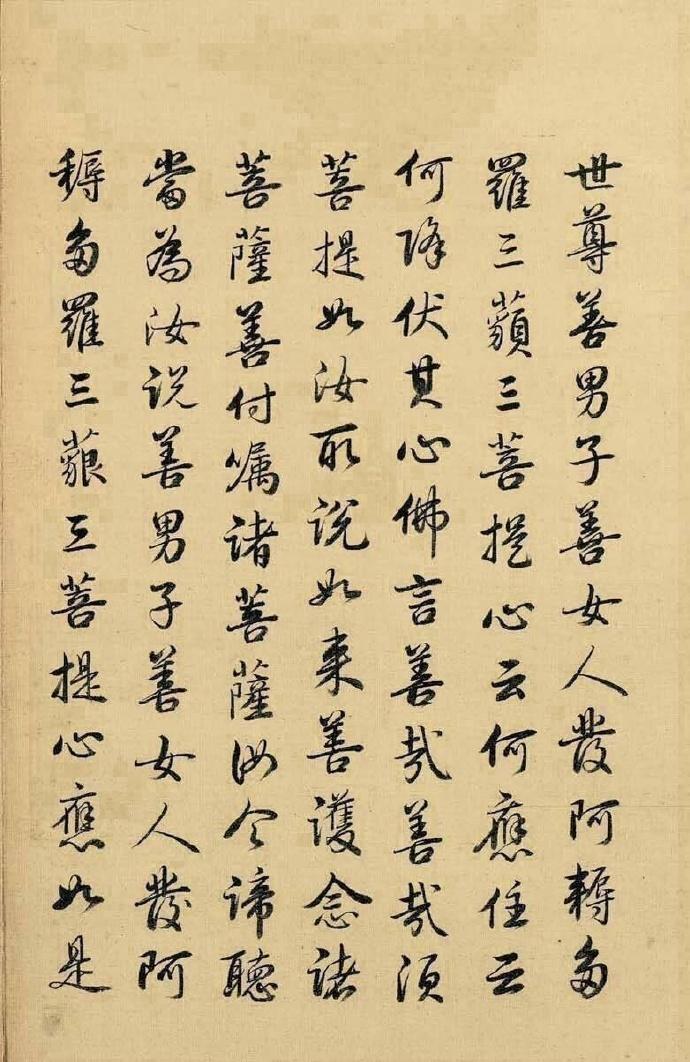 世尊善男子善女人發阿耨多
羅三藐三菩提心云何應住云
何降伏其心佛言善哉善哉須
菩提如汝所說如來善護念諸
菩薩善付嘱諸菩薩汝今諦聽
當為汝說善男子善女人發阿
耨多羅三藐三菩提心應如是